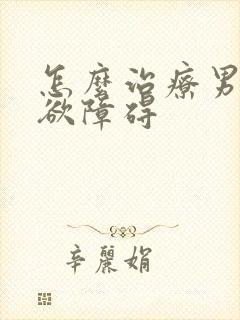 怎麼治療男
欲障碍
辛麗娟